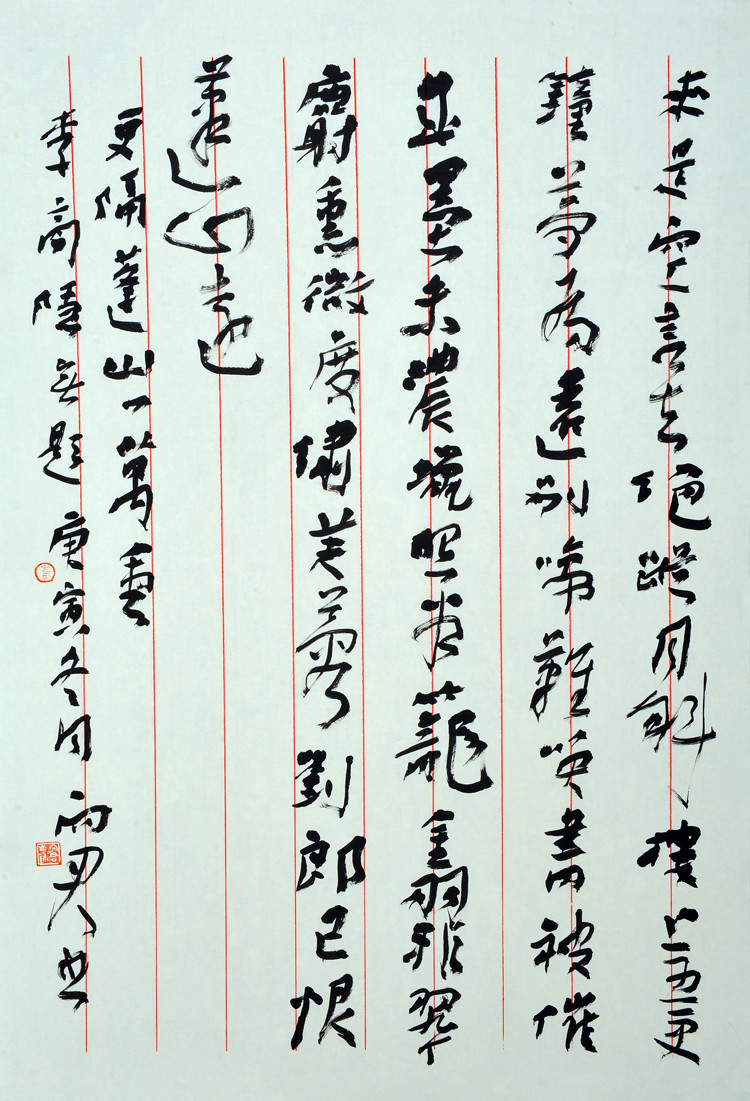 來是空言去絕蹤月斜樓上五更
鐘夢為遠別啼難喚書被催
成墨未濃蠟照半籠金翡翠
麝熏微度繡芙蓉劉郎已恨
蓬山遠
更隔蓬山一萬重
李商隱無題 庚寅冬月 書